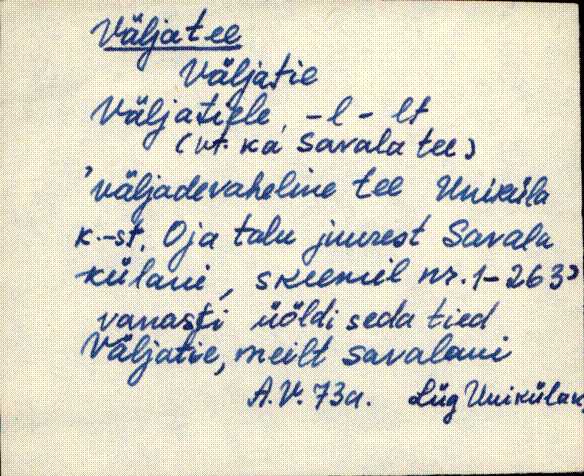 Väljatee
Väljatie
Väljatiele, -l - lt
(vt. ka Savala tee)
'väljadevaheline tee Uniküla
k.-st, Oja talu juurest Savala
külani, skeemil nr. 1-263'
vanasti üöldi seda tied
Väljatie, meilt savalani
A.V. 73a. Lüg Unikülak.